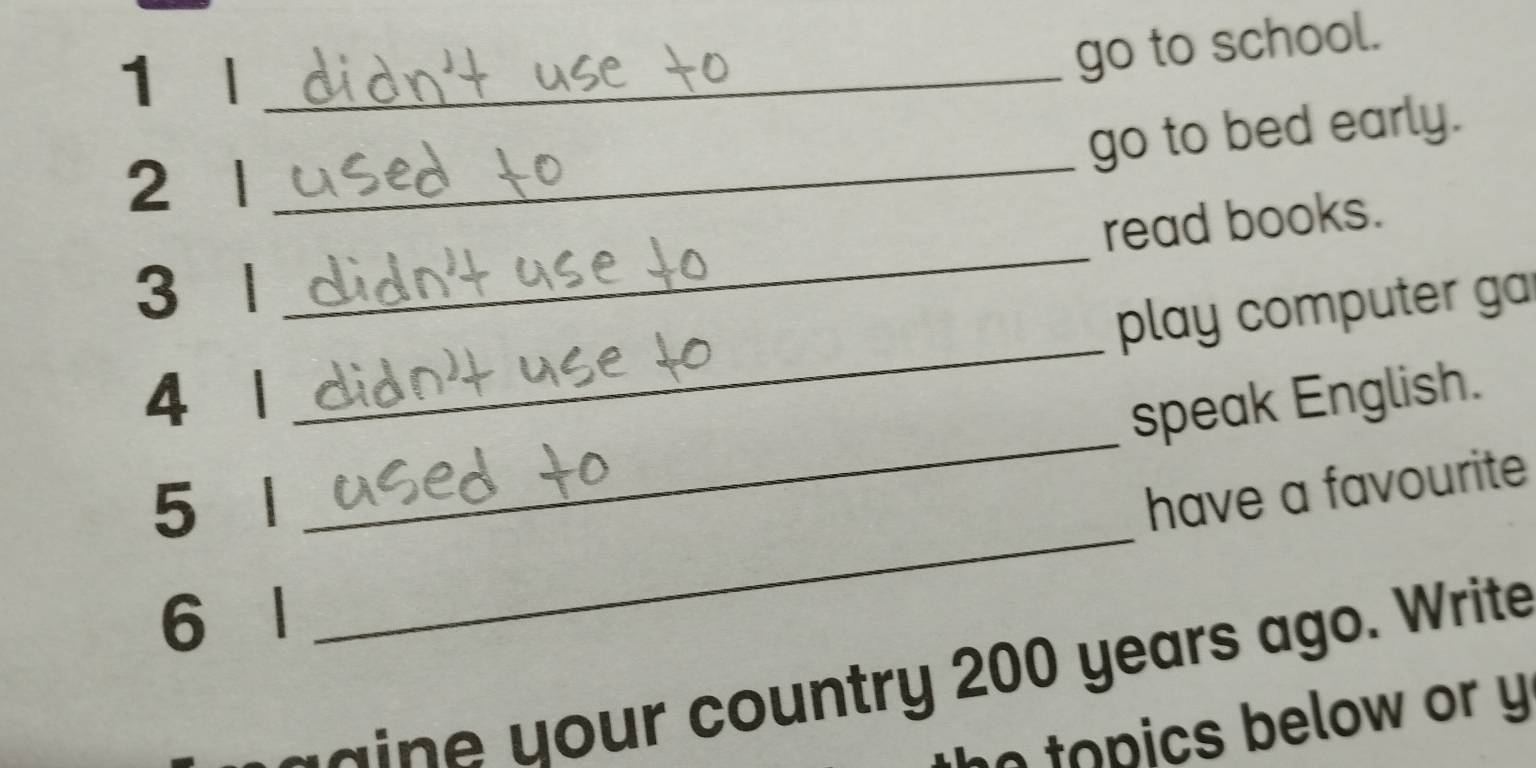 1 I didn't use to go to school.
2 I used to go to bed early.
3 I didn't use to read books.
4 I didn't use to play computer
5 I used to speak English.
6 I have a favourite
your country 200 years ago. Write
the topics below or